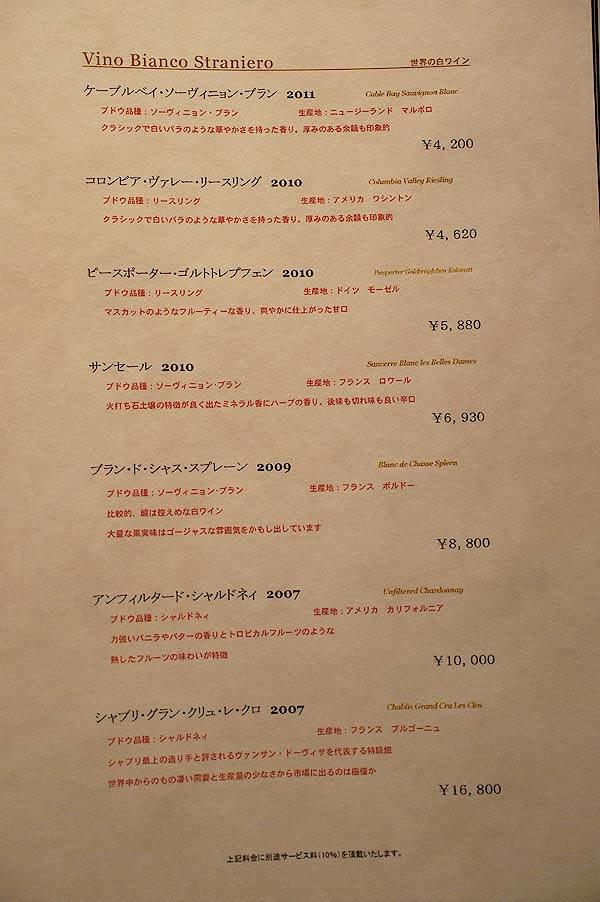 Vino Bianco Straniero 世界の白ワイン
ケーブルベイ・ソーヴィニョン・ブラン 2011 Cable Bay Sauvignon Blanc
ブドウ品種：ソーヴィニョン・ブラン 生産地：ニュージーランド マルボロ
クラシックで白いバラのような華やかさを持った香り。厚みのある余韻も印象的
￥4, 200
コロンビア・ヴァレー・リースリング 2010 Columbia Valley Riesling
ブドウ品種：リースリング 生産地：アメリカ ワシントン
クラシックで白いバラのような華やかさを持った香り。厚みのある余韻も印象的
￥4, 620
ピースポーター・ゴルトトレプフェン 2010 Piesporter Goldtropfchen Kabinett
ブドウ品種：リースリング 生産地：ドイツ モーゼル
マスカットのようなフルーティーな香り、爽やかに仕上がった甘口
￥5, 880
サンセール 2010 Sancerre Blanc les Belles Dames
ブドウ品種：ソーヴィニョン・ブラン 生産地：フランス ロワール
火打ち石土壌の特徴が良く出たミネラル香にハーブの香り、後味も切れ味も良い辛口
￥6, 930
ブラン・ド・シャス・スプレーン 2009 Blanc de Chasse Spleen
ブドウ品種：ソーヴィニョン・ブラン 生産地：フランス ボルドー
比較的、酸は控えめな白ワイン
大量な果実味はゴージャスな雰囲気をかもし出しています
￥8, 800
アンフィルタード・シャルドネィ 2007 Unfiltered Chardonnay
ブドウ品種：シャルドネィ 生産地：アメリカ カリフォルニア
力強いバニラやバターの香りとトロピカルフルーツのような
熟したフルーツの味わいが特徴
￥10, 000
シャブリ・グラン・クリュ・レ・クロ 2007 Chablis Grand Cru Les Clos
ブドウ品種：シャルドネィ 生産地：フランス ブルゴーニュ
シャブリ最上の造り手と評されるヴァンサン・ドーヴィサを代表する特級畑
世界中からのもの凄い需要と生産量の少なさから市場に出るのは極僅か
￥16, 800
上記料金に別途サービス料（10％）を頂戴いたします。